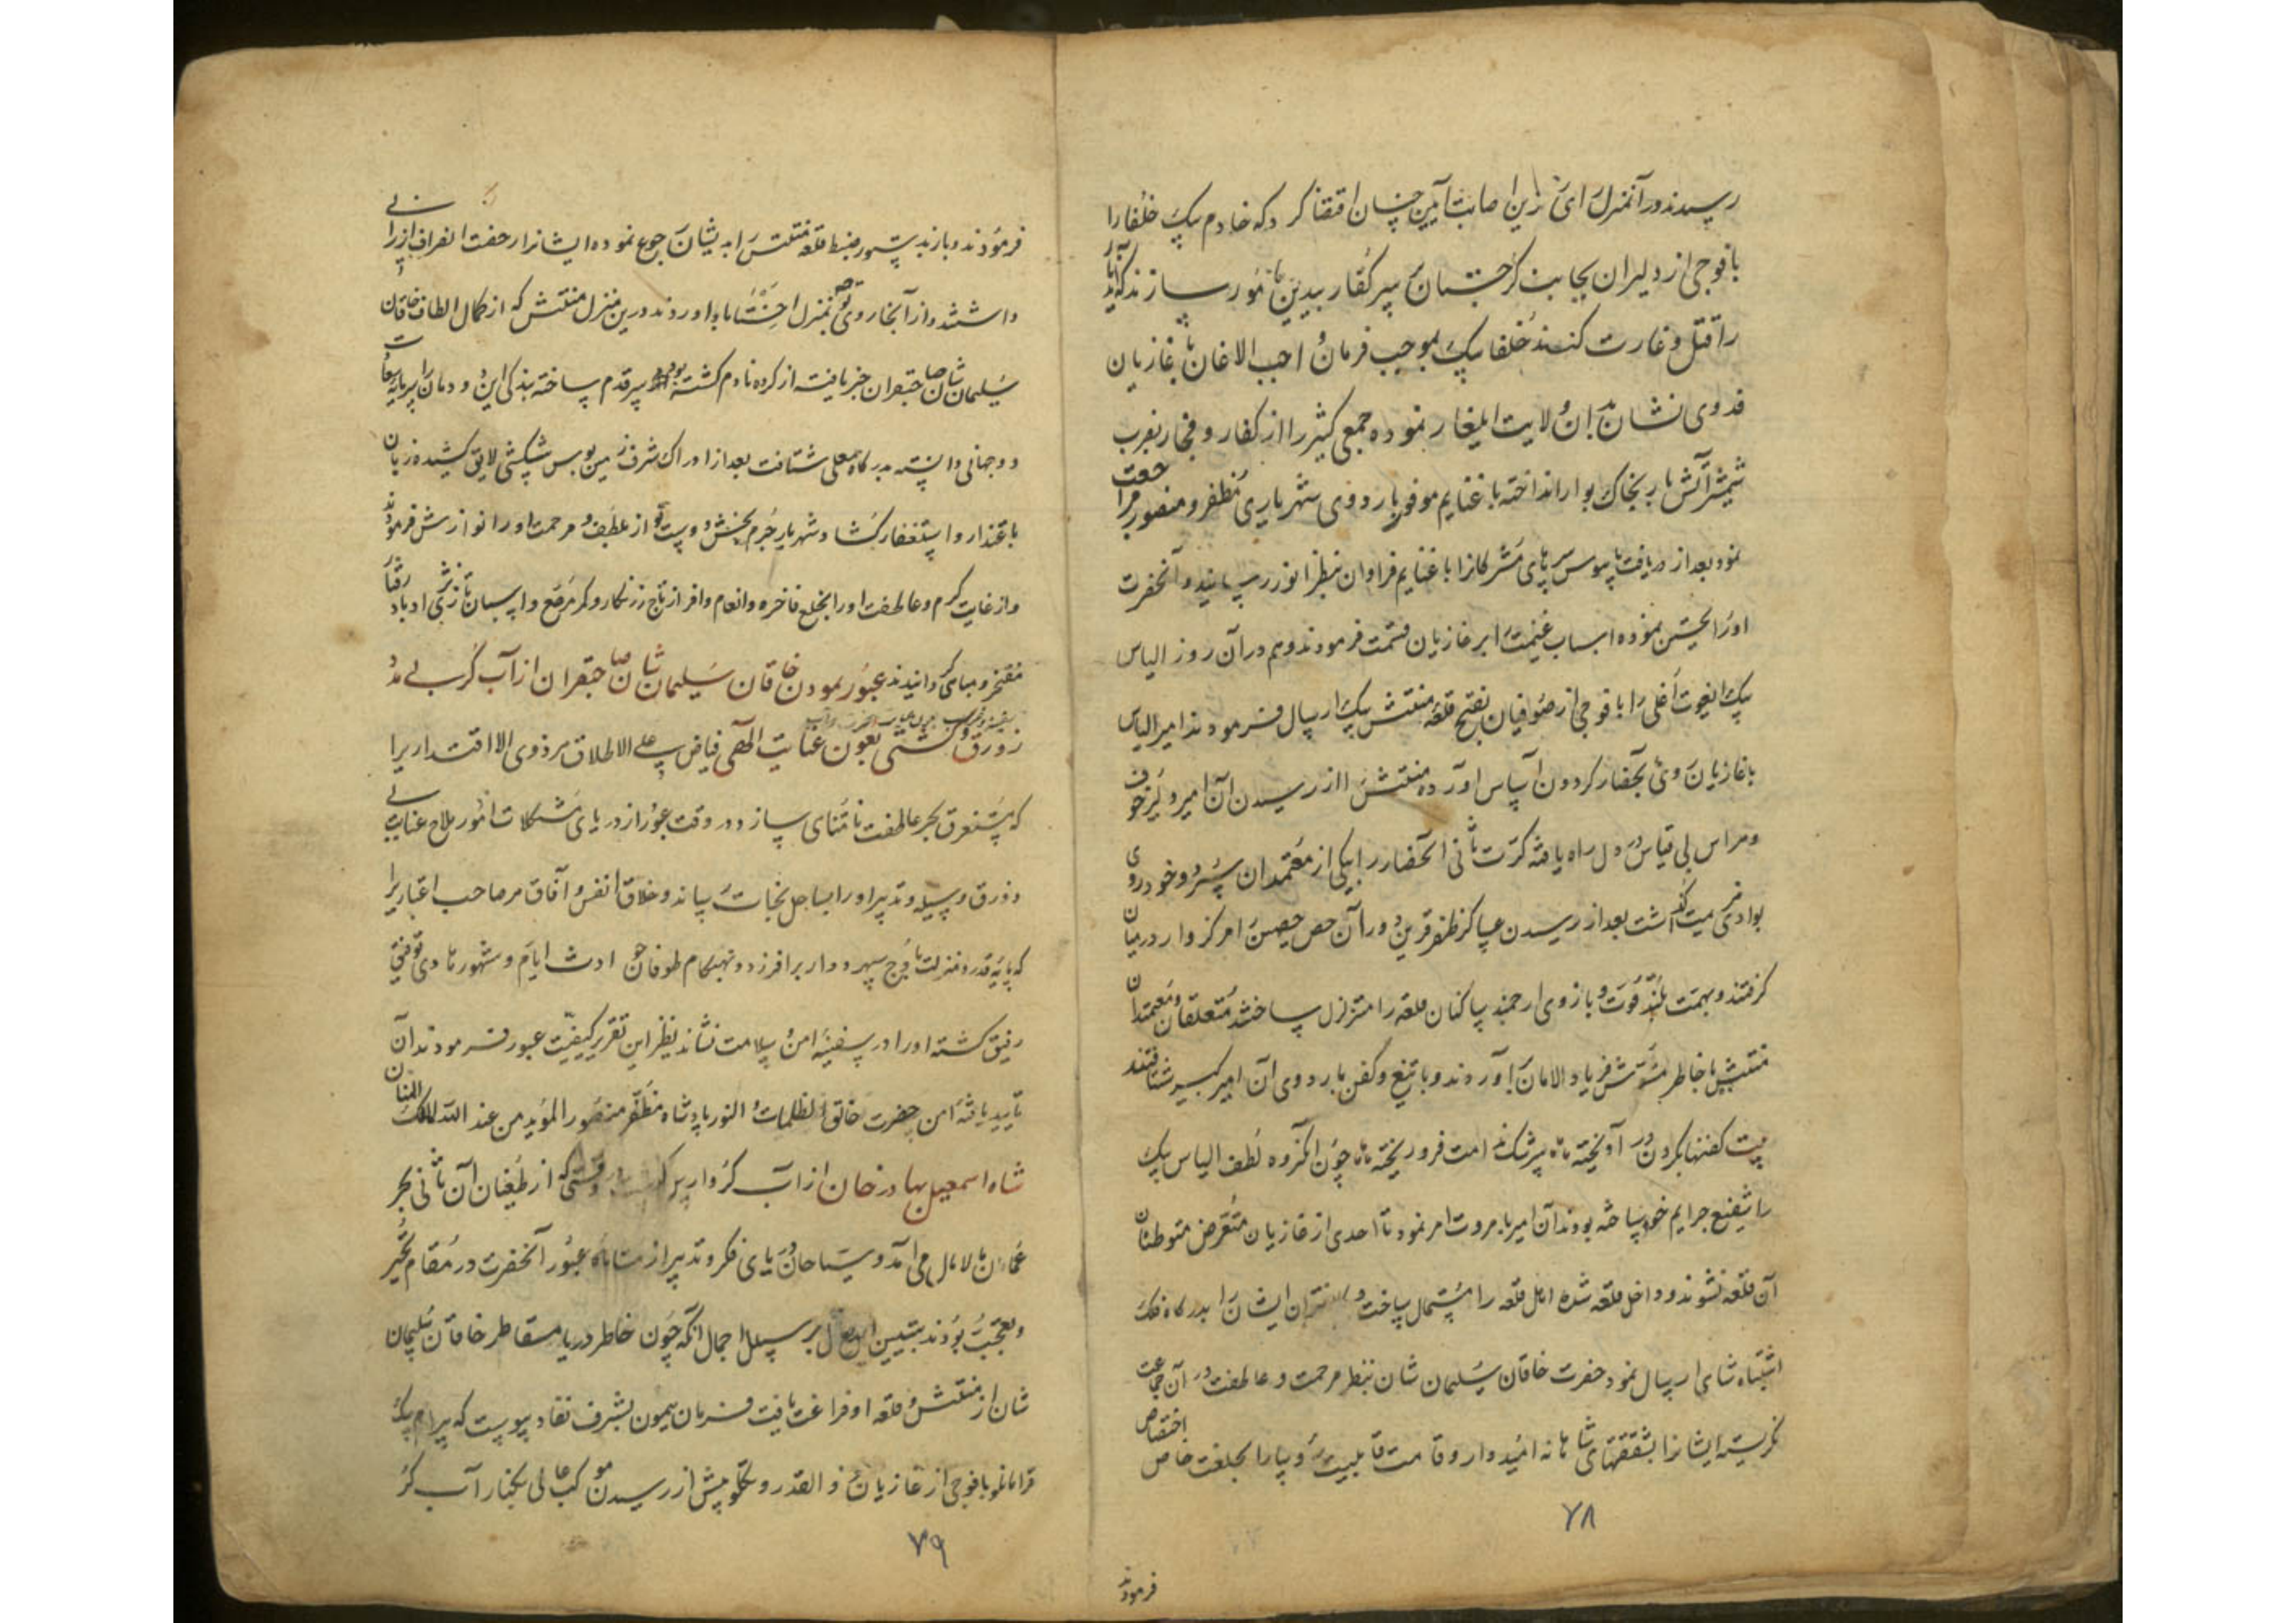 رسیدند در آنمنزل رای زرین اصابت آیین چنان اقتضا کرد که خادم بیک خلفا را
با فوجی از دلیران بجانب گرجستان بر سر کفار بیدین مامور سازند که آن دیار
را قتل و غارت کنند خلفا بیک بموجب فرمان واجب الاذعان با غازیان
فدوی نشان بدان ولایت ایلغار نموده جمعی کثیر را از کفار و فجار بضرب
شمشیر آتش بار بخاک بوار انداخته با غنایم موفور باردوی شهریاری مظفر و منصور مراجعت
نمود بعد از دریافت پابوس سرهای مشرکانرا با غنایم فراوان بنظر انور رسانید و آنحضرت
او را تحسین نموده اسباب غنیمت را بر غازیان قسمت فرمودند و هم در آن روز الیاس
بیک ایغوت اغلی را با فوجی از صوفیان بفتح قلعه منتش بیک ارسال فرمودند امیر الیاس
با غازیان روی بحصار گردون اساس آورده منتش را از رسیدن آن امیر دلیر خوف
و هراس بی قیاس در دل راه یافته کرت ثانی آنحصار را بیکی از معتمدان سپرد و خود روی
بوادی هزیمت گذاشت بعد از رسیدن عساکر ظفر قرین در آن حصن حصین را مرکز وار در میان
گرفتند و بهمت بلند و قوت بازوی ارجمند ساکنان قلعه را متزلزل ساختند متعلقان و معتمدان
منتش با خاطر مشوش فریاد الامان برآوردند و با تیغ و کفن باردوی آن امیر کبیر شتافتند
بیت کفنها بگردن در آویخته سرشک ندامت فرو ریخته چون آنگروه لطف الیاس بیک
را شفیع جرایم خود ساخته بودند آن امیر با مروت امر نمود تا احدی از غازیان متعرض متوطنان
آن قلعه نشوند و داخل قلعه شده اهل قلعه را مستمال ساخت و ایشان را بدرگاه فلک
اشتباه شاهی ارسال نمود حضرت خاقان سلیمان شان بنظر مرحمت و عاطفت در آن جماعت
نگریسته ایشانرا بشفقتهای شاهانه امیدوار و قامت قابلیت رؤسا را بخلعت خاص اختصاص
۷۸
فرمودند
فرمودند و باز بدستور ضبط قلعه منتش را بدیشان رجوع نموده ایشانرا رخصت انصراف ارزانی
داشتند و از آنجا روی توجه بمنزل آورند درین منزل منتش که از کمال الطاف خاقان
سلیمان شان صاحبقران خبر یافته از کرده نادم گشته بود سر قدم ساخته بندگی این دودمان را سرمایه سعادت
دو جهانی دانسته بدرگاه معلی شتافت بعد از ادراک شرف زمین بوس پیشکشی لایق کشیده زبان
باعتذار و استغفار گشاد شهریار جرم بخش دوست نواز از عطف و مرحمت او را نوازش فرمودند
و از غایت کرم و عاطفت او را بخلع فاخره و انعام وافر از تاج زرنگار و کمر مرصع و اسبان تازی نژاد باد رفتار
مفتخر و مباهی گردانیدند عبور نمودن خاقان سلیمان شان صاحبقران از آب کر بی مدد
زورق و کشتی بعون عنایت الهی فیاض علی الاطلاق هر ذوی الاقتداریرا
که مستغرق بحر عاطفت نامتناهی سازد در وقت عبور از دریای مشکلات امور ملاح عنایت بی
زورق وسیله و تدبیر او را بساحل نجات رساند و خلاق انفس و آفاق هر صاحب اعتباریرا
که پایه قدر و منزلت باوج سپهر دوار برافرازد در هنگام طوفان حوادث ایام و شهور هادی توفیق
رفیق گشته او را در سفینه امن و سلامت نشاند نظیر این تقریر کیفیت عبور فرمودند آن
تایید یافته من حضرت خالق الظلمات و النور پادشاه مظفر منصور المؤید من عند الله الملک المنان
شاه اسمعیل بهادر خان از آب کر وقتی که از طغیان آن ثانی بحر
عمان مالامال می آمد و سیاحان دریای فکر و تدبیر از مشاهده عبور آنحضرت در مقام تحیر
و تعجب بودند تبیین این مقال بر سبیل اجمال آنکه چون خاطر دریا مقاطر خاقان سلیمان
شان از منتش و قلعه او فراغت یافت فرمان همیون بشرف نفاذ پیوست که بیرام بیک
قرامانلو با فوجی از غازیان ذو القدر و تکلو پیش از رسیدن موکب عالی بکنار آب کر
۷۹